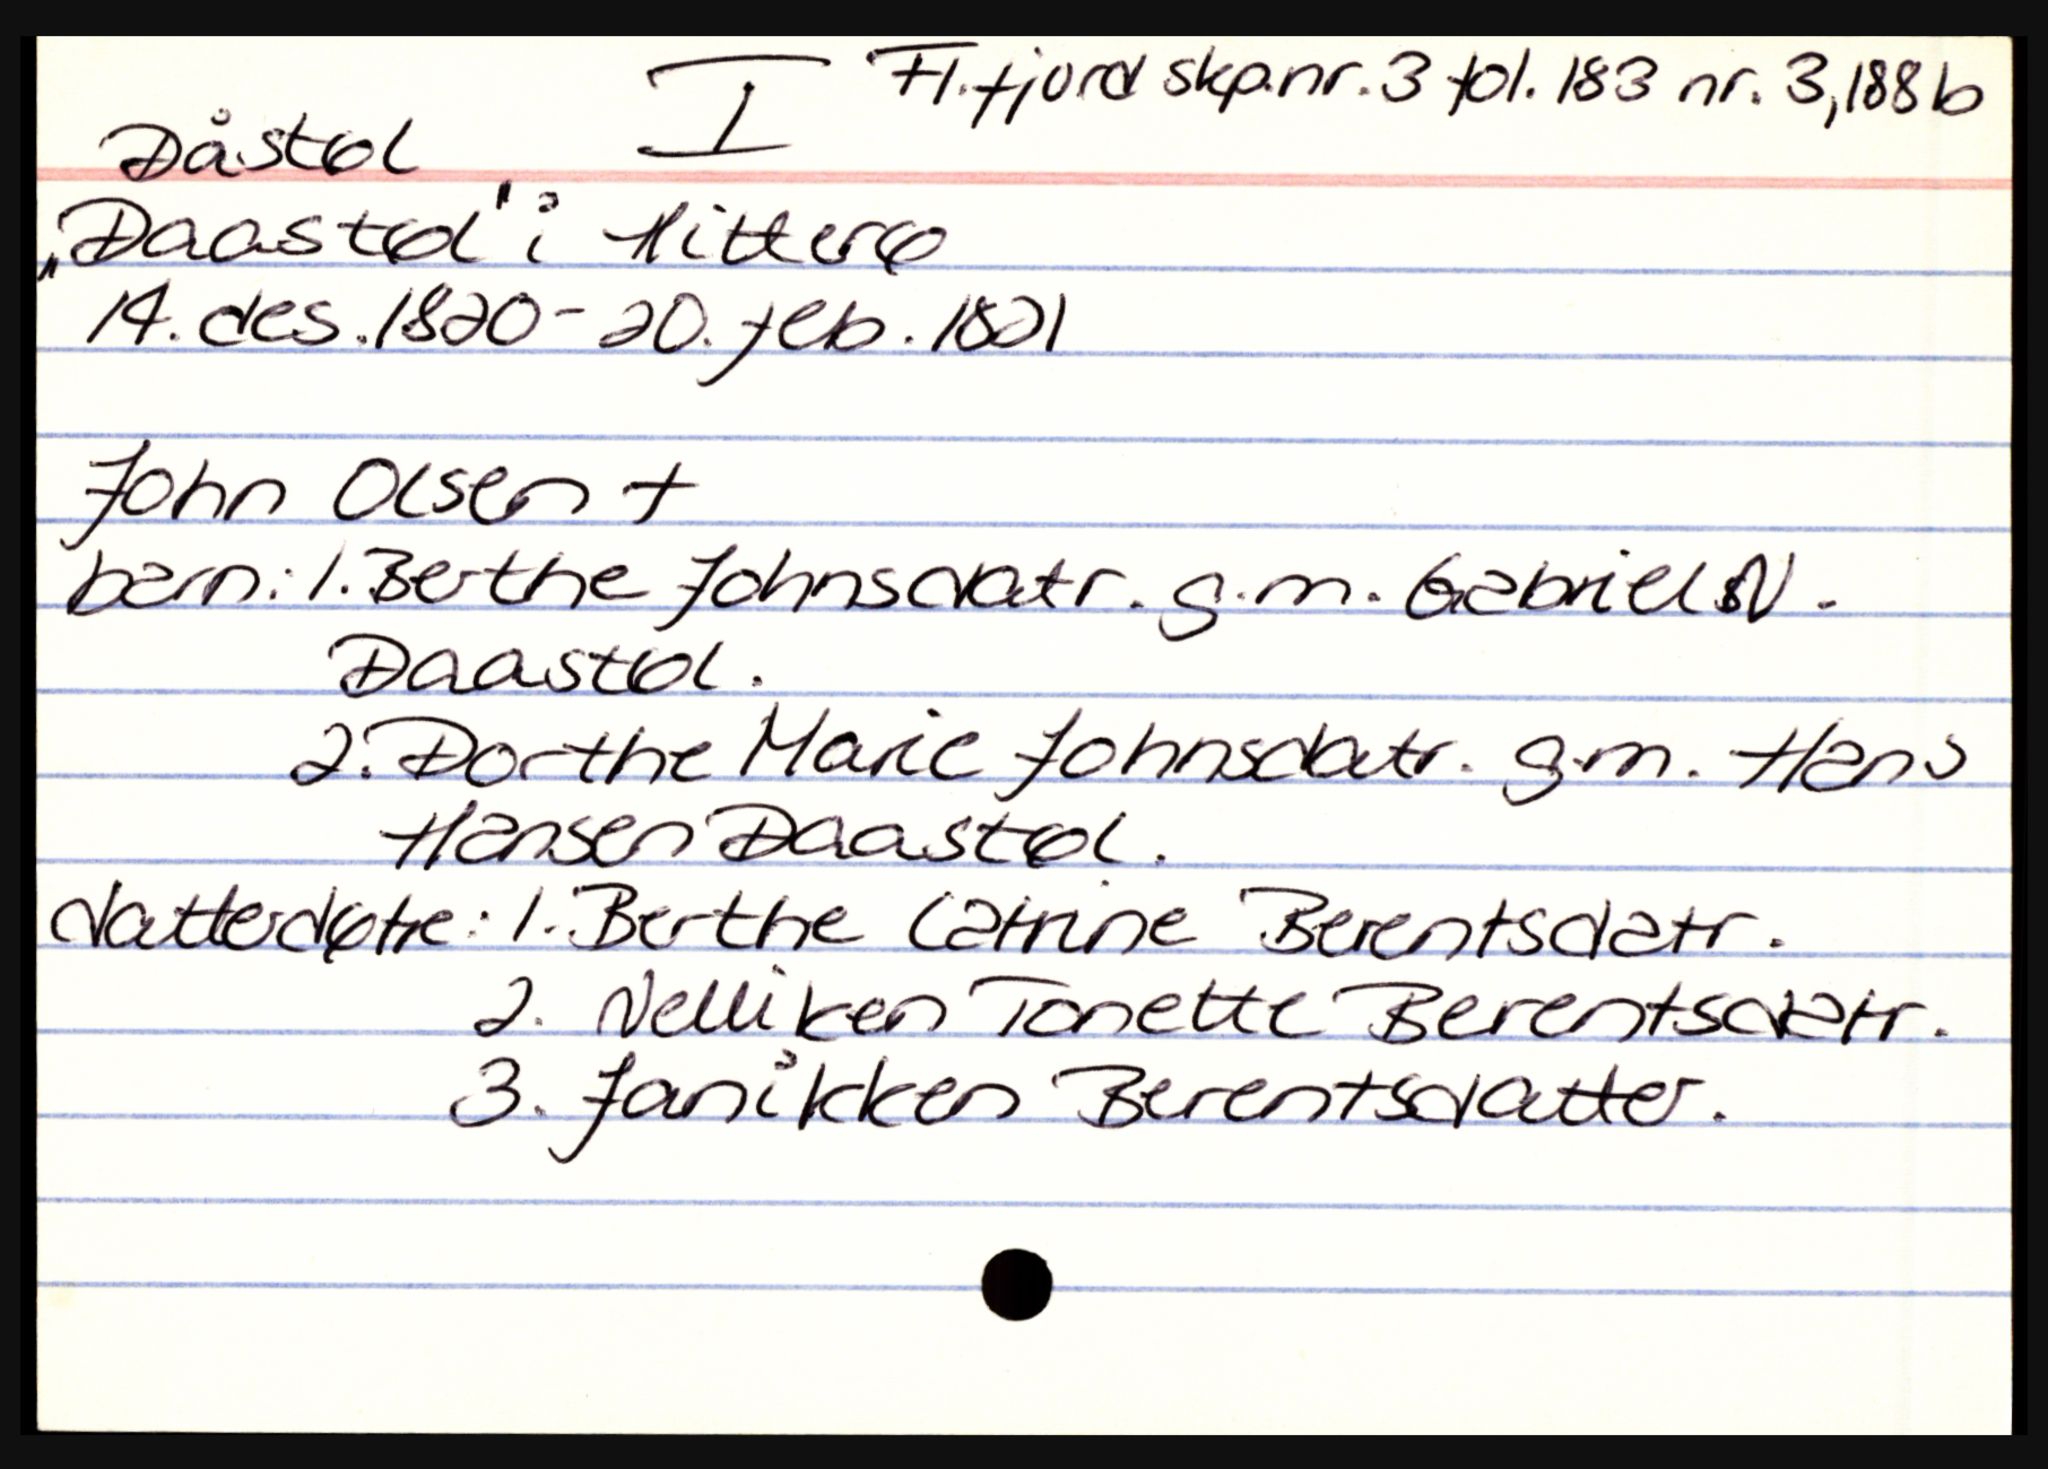 I Fl.fjord skp.nr. 3 fol. 183 nr. 3, 188b
Dåstøl
„Daastøl" i Hitterø
14. des. 1820 - 20. feb. 1821
John Olsen +
barn: 1. Berthe Johnsdatr. g.m. Gabriel N.
Daastøl.
2. Dorthe Marie Johnsdatr. g.m. Hans
Hansen Daastøl.
datterdøtre: 1. Berthe Catrine Berentsdatr.
2. Nelliken Tonette Berentsdatr.
3. Janikken Berentsdatter.